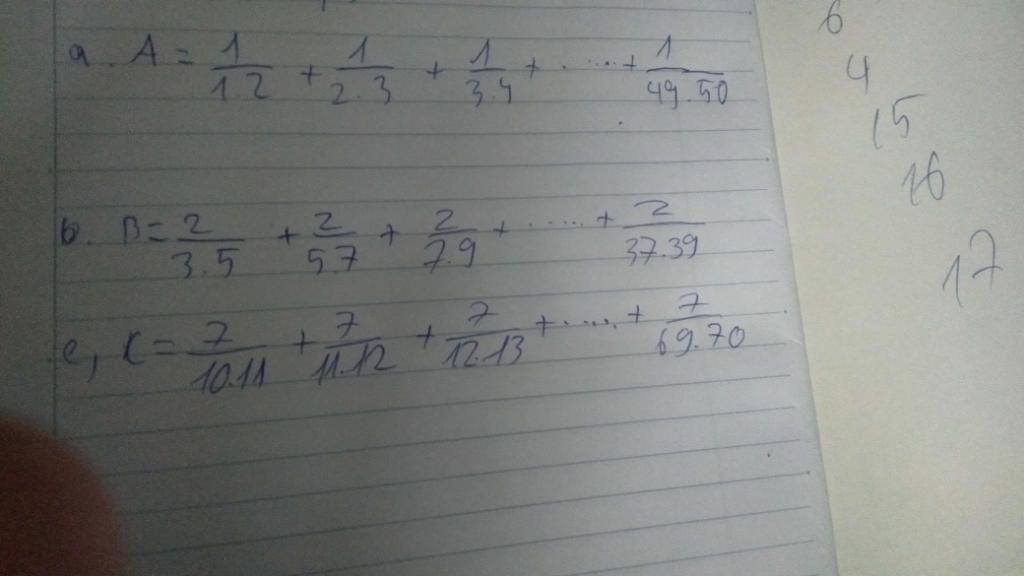 a. A = 1/1.2 + 1/2.3 + 1/3.4 + ..... + 1/49.50
b. B = 2/3.5 + 2/5.7 + 2/7.9 + ..... + 2/37.39
c, C = 7/10.11 + 7/11.12 + 7/12.13 + ..... + 7/69.70
6
4
15
16
17